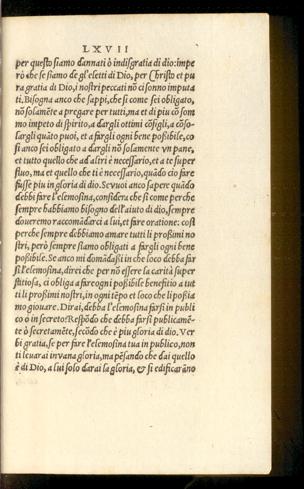 LXVII
per questo siamo dannati ò indisgratia di dio: impe
rò che se siamo de gl'eletti di Dio, per Christo et pu
ra gratia di Dio, i nostri peccati nō ci sonno imputa
ti. Bisogna anco che sappi, che si come sei obligato,
nō solamēte a pregare per tutti, ma et di piu cō som
mo impeto di spirito, a dargli ottimi cōsigli, a cōso-
largli quāto puoi, et a fargli ogni bene poßibile, co
si anco sei obligato a dargli nō solamente vn pane,
et tutto quello che ad altri è necessario, et a te super
fluo, ma et quello che ti è necessario, quādo cio fare
fusse piu in gloria di dio. Se vuoi anco sapere quādo
debbi fare l'elemosina, considera che si come perche
sempre habbiamo bisogno dell'aiuto di dio, sempre
doueremo raccomādarci a lui, et fare oratione: cosi
perche sempre debbiamo amare tutti li proßimi no
stri, però sempre siamo obligati a fargli ogni bene
poßibile. Se anco mi domādaßi in che loco debba far
si l'elemosina, direi che per nō essere la carità super
stitiosa, ci obliga a fare ogni poßibile benefitio a tut
ti li proßimi nostri, in ogni tēpo et loco che li poßia
mo giouare. Dirai, debba l'elemosina farsi in publi
co ò in secreto? Respōdo che debba farsi publicamē-
te ò secretamēte, secōdo che è piu gloria di dio. Ver
bi gratia, se per fare l'elemosina tua in publico, non
ti leuarai in vana gloria, ma pēsando che dai quello
è di Dio, a lui solo darai la gloria, & si edificarāno